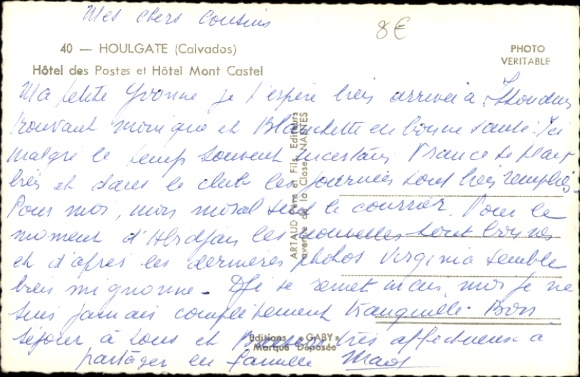 Mes chers Cousins
8€
40 — HOULGATE (Calvados)
Hôtel des Postes et Hôtel Mont Castel
PHOTO
VERITABLE
Ma petite Yvonne je t'espère bien arrivée à
trouvant monique et Blanchette en bonne santé. Ici
malgré le temps souvent incertain, France se plait
bien et dans le club les journées sont bien remplies
Pour moi, mon moral suit le courrier. Pour le
moment d'Abidjan les nouvelles sont bonnes
et d'après les dernières photos Virginia semble
bien mignonne. se remet mais moi je ne
suis jamais complètement tranquille. Bon
séjour à tous et très affectueux à
partager en famille
ARTAUD Père et Fils, Editeurs
avenue de la Close, NANTES
Editions "GABY"
Marque Déposée